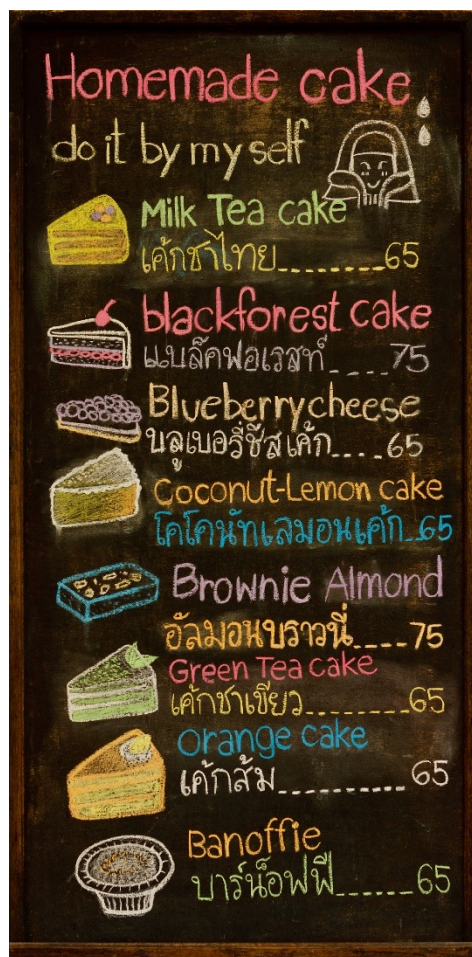 Homemade cake
do it by my self
Milk Tea cake
เค้กชาไทย........65
blackforest cake
แบล็คฟอเรสท์.....75
Blueberry cheese
บลูเบอรี่ชีสเค้ก....65
Coconut-Lemon cake
โคโคนัทเลมอนเค้ก..65
Brownie Almond
อัลมอนบราวนี่....75
Green Tea cake
เค้กชาเขียว........65
Orange cake
เค้กส้ม..........65
Banoffie
บาร์น็อฟฟี่......65